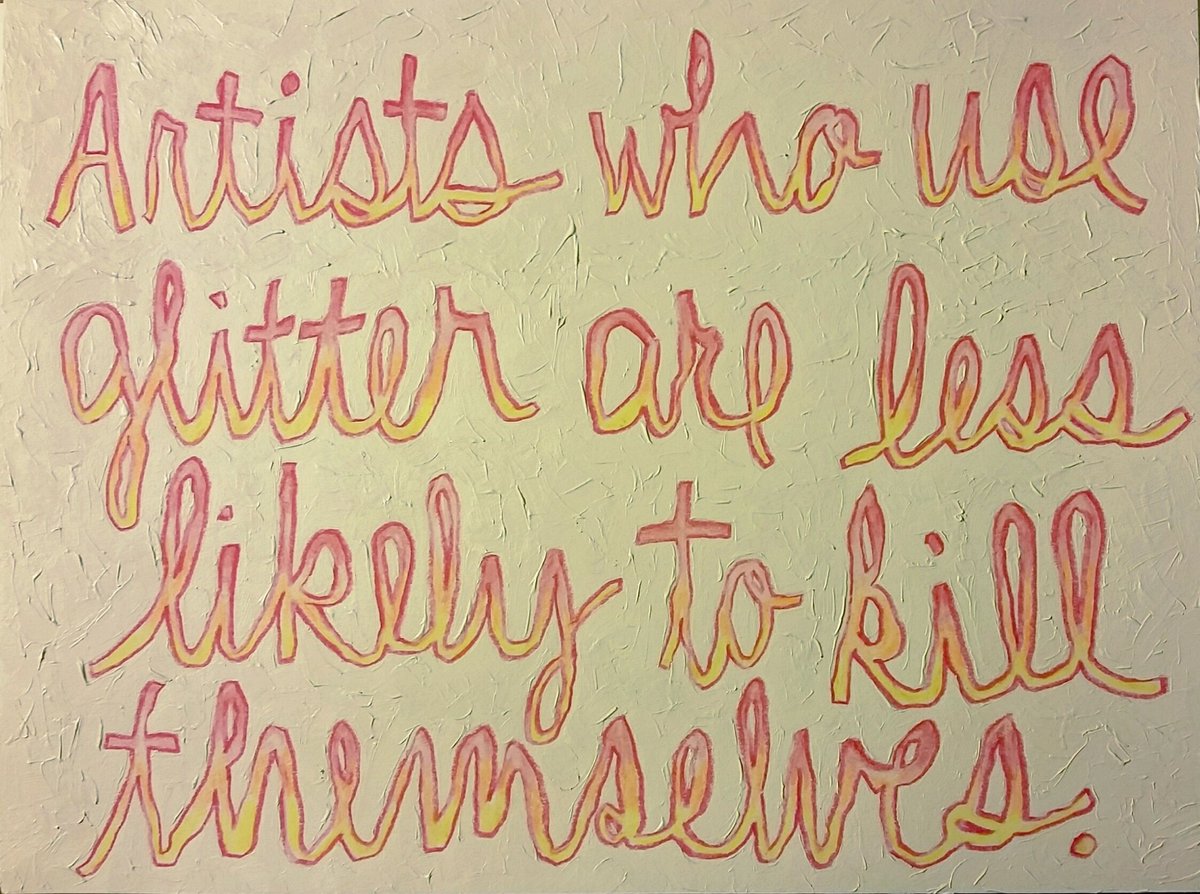 Artists who use
glitter are less
likely to kill
themselves.